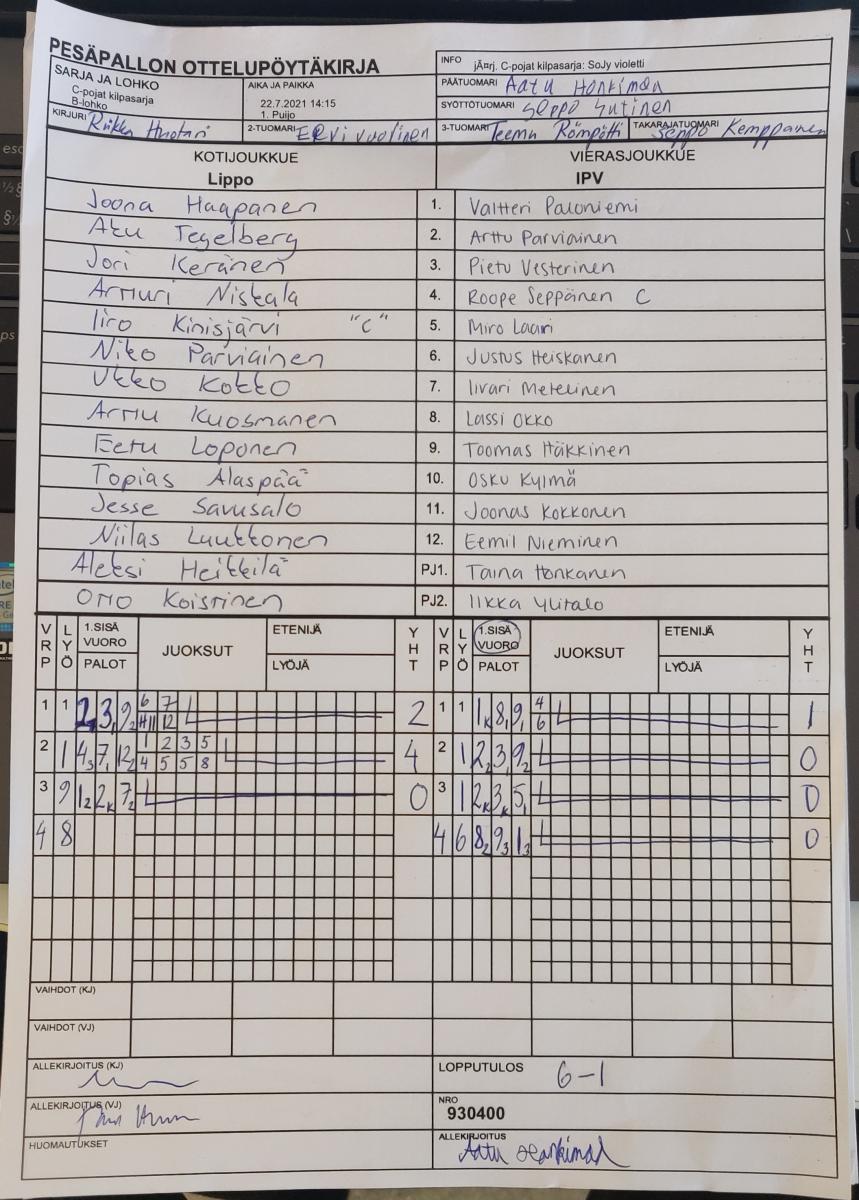 PESÄPALLON OTTELUPÖYTÄKIRJA
INFO jÃ¤rj. C-pojat kilpasarja: SoJy violetti
SARJA JA LOHKO
C-pojat kilpasarja
B-lohko
AIKA JA PAIKKA
22.7.2021 14:15
1. Puijo
PÄÄTUOMARI Aatu Honkiman
SYÖTTÖTUOMARI Seppo Sutinen
KIRJURI Riikka Huotari
2-TUOMARI EERVi vuolinen
3-TUOMARI Teemu Römpötti
TAKARAJATUOMARI Seppo Kemppainen
KOTIJOUKKUE
Lippo
VIERASJOUKKUE
IPV
Joona Haapanen 1. Valtteri Paloniemi
Atu Tegelberg 2. Arttu Parviainen
Jori Keränen 3. Pietu Vesterinen
Artturi Niskala 4. Roope Seppänen C
Iiro Kinisjärvi "C" 5. Miro Laari
Niko Parviainen 6. Justus Heiskanen
Ukko Kokko 7. Iivari Metelinen
Arttu Kuosmanen 8. Lassi Okko
Eetu Loponen 9. Toomas Häkkinen
Topias Alaspää 10. Osku Kylmä
Jesse Savusalo 11. Joonas Kokkonen
Niilas Luukkonen 12. Eemil Nieminen
Aleksi Heikkilä PJ1. Taina Honkanen
Otto Koistinen PJ2. Ilkka Ylitalo
VRP LYÖ 1.SISÄ VUORO PALOT JUOKSUT ETENIJÄ LYÖJÄ YHT VRP LYÖ 1.SISÄ VUORO PALOT JUOKSUT ETENIJÄ LYÖJÄ YHT
1 1 2, 3, 9₂ 6 7 2 1 1 1ₖ 8, 9, 4 1
11 12 6
2 1 4₃ 7, 12₂ 1 2 3 5 4 2 1 2₂ 3, 9₂ 0
4 5 5 8
3 9 1₂ 2ₖ 7₂ 0 3 1 2ₖ 3ₖ 5, 0
4 8 4 6 8₂ 9₃ 1₃ 0
VAIHDOT (KJ)
VAIHDOT (VJ)
ALLEKIRJOITUS (KJ)
LOPPUTULOS 6-1
ALLEKIRJOITUS (VJ)
NRO
930400
HUOMAUTUKSET
ALLEKIRJOITUS